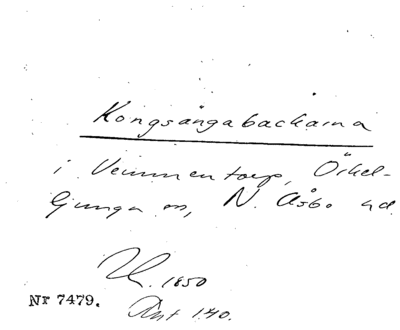 Kongsångabackarna
i Vemmentorp, Örkel-
ljunga sn, N. Åsbo hd.
U. 1850
Ant 140.
Nr 7479.